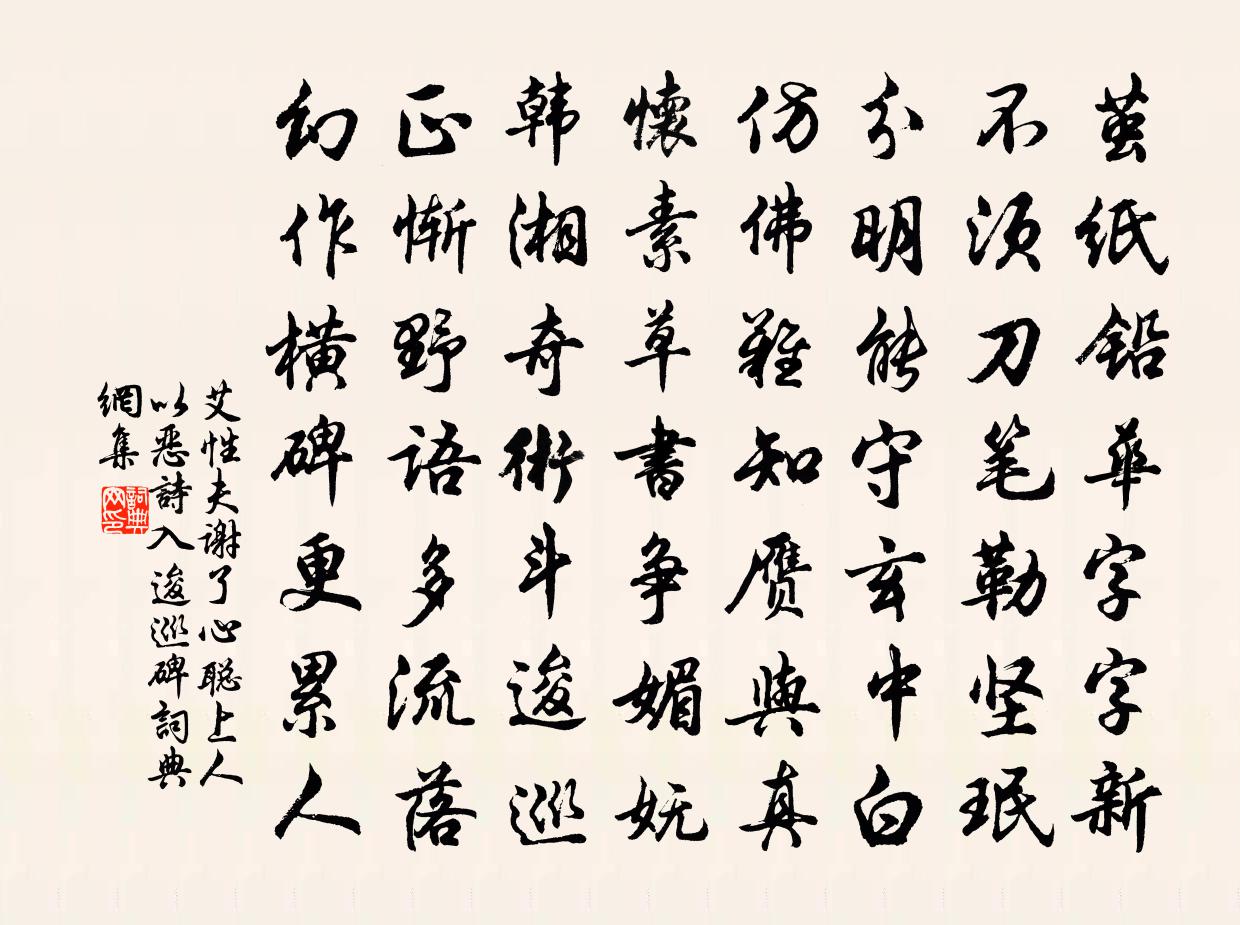 茧纸铅华字字新
不须刀笔勒坚珉
分明能守玄中白
仿佛难知赝與真
懷素草書争媚妩
韩湘奇術斗逡巡
正惭野语多流落
幻作横碑更累人
艾性夫谢了心聪上人
以恶詩入逡巡碑詞典
網集
詞典
网印